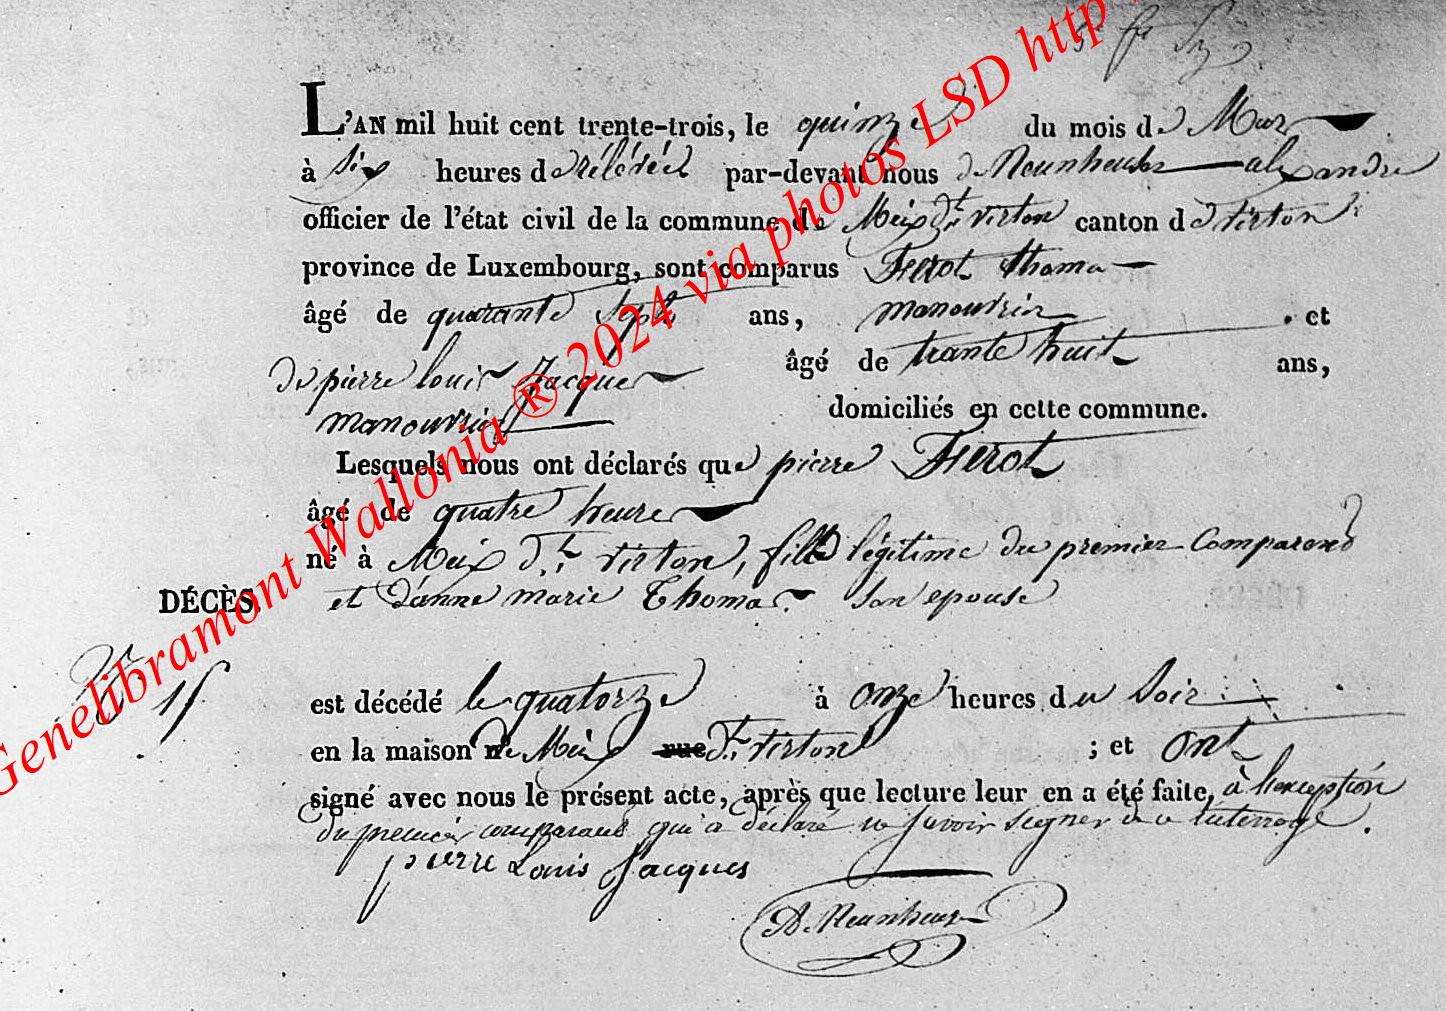 L'AN mil huit cent trente-trois, le quinze du mois de Mars
à six heures de rélévéé par-devant nous de Neunheuser alexandre
officier de l'état civil de la commune de Meix dt virton canton de virton
province de Luxembourg, sont comparus Fierot thoma
âgé de quarante sept ans, manouvrier et
de pierre louis Jacques âgé de trante huit ans,
manouvrier domiciliés en cette commune.
Lesquels nous ont déclarés que pierre Fierot
âgé de quatre heures
né à Meix dt virton, fils légitime du premier Comparend
DÉCÈS. et d'anne marie Thomas. Son epouse
15 est décédé le quatorze à onze heures du Soir
en la maison de Meix dt virton ; et ont
signé avec nous le présent acte, après que lecture leur en a été faite, à l'exception
du premier comparant qui a déclaré ne savoir signer de ce interrogé.
pierre Louis Jacques
A. Neunheuser
Genelibramont Wallonia ® 2024 via photos LSD http